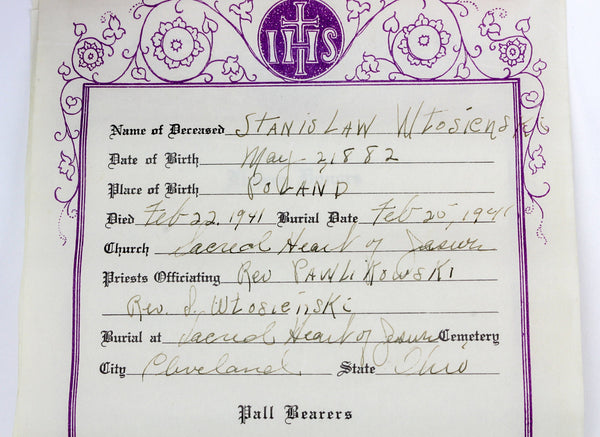 IHS
Name of Deceased STANISLAW Włosienski
Date of Birth May 2, 1882
Place of Birth POLAND
Died Feb 22. 1941 Burial Date Feb 25, 1941
Church Sacred Heart of Jesus
Priests Officiating Rev PAWLIKOWSKI
Rev. S. Włosieński
Burial at Sacred Heart of Jesus Cemetery
City Cleveland State Ohio
Pall Bearers